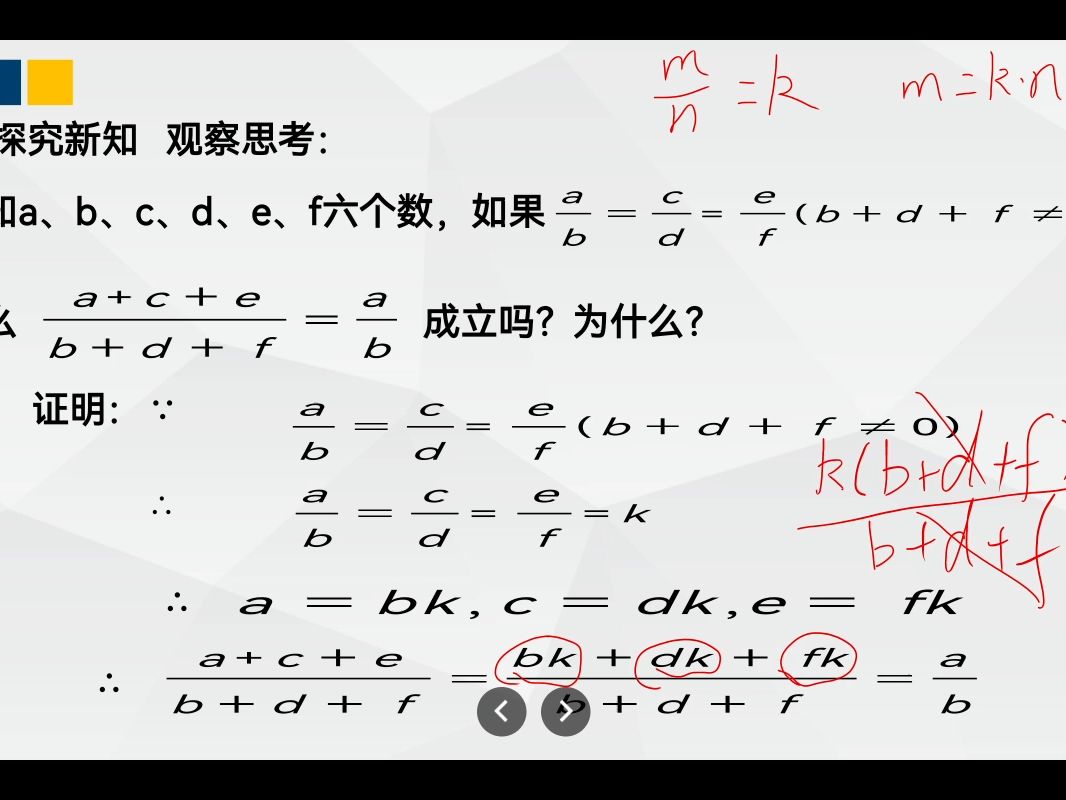 m/n = k m = k·n
探究新知 观察思考：
如a、b、c、d、e、f六个数，如果 a/b = c/d = e/f (b + d + f ≠
么 (a + c + e)/(b + d + f) = a/b 成立吗？为什么？
证明： ∵ a/b = c/d = e/f (b + d + f ≠ 0)
k(b+d+f)/(b+d+f)
∴ a/b = c/d = e/f = k
∴ a = bk, c = dk, e = fk
∴ (a + c + e)/(b + d + f) = (bk + dk + fk)/(b + d + f) = a/b